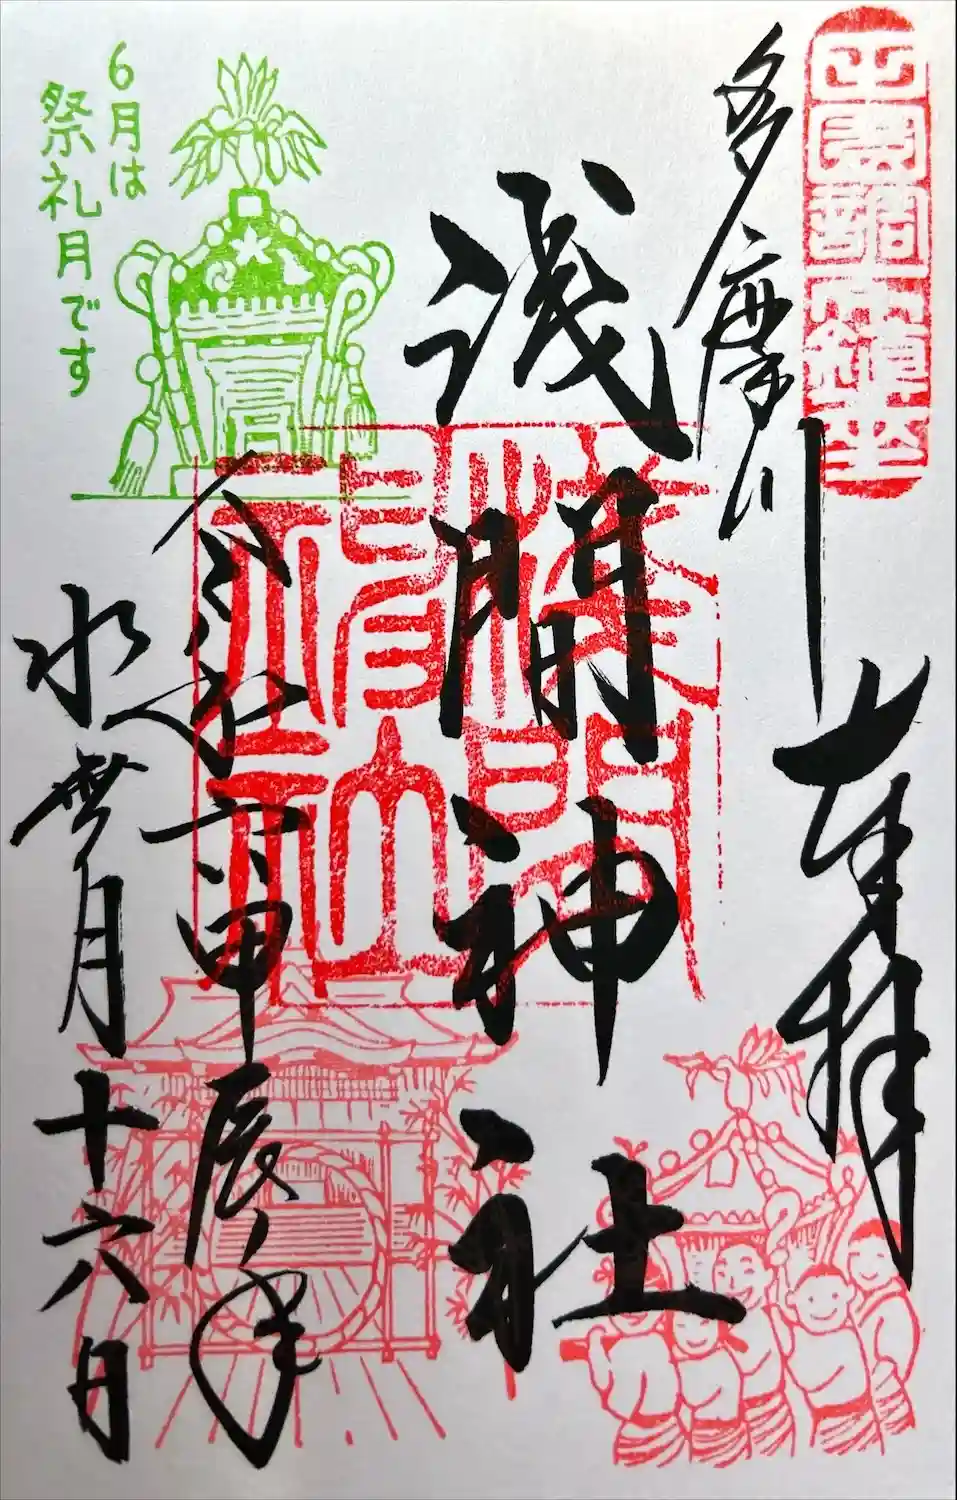 奉拝
多摩川
浅間神社
令和六甲辰年
水無月十六日
6月は
祭礼月です
浅間
神社